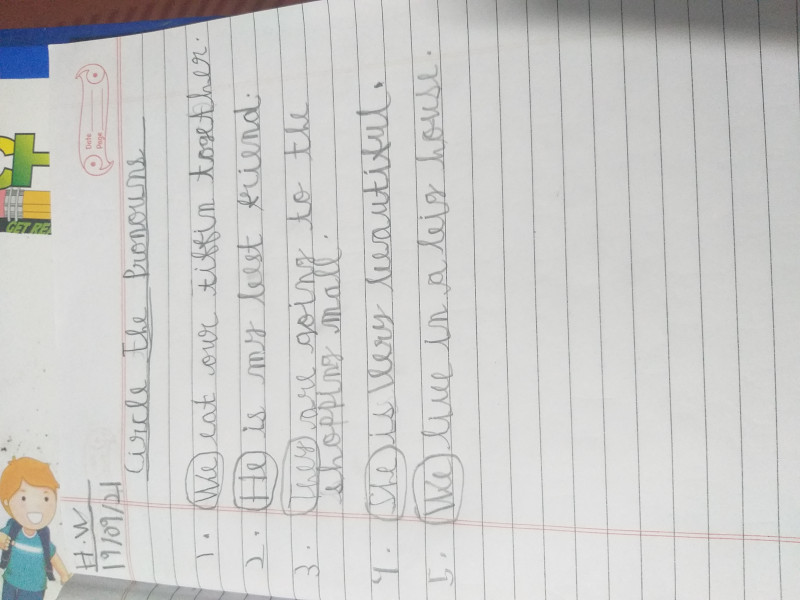 Date
Page
H.W
19/09/21
Circle The Pronouns
1. We eat our tiffin together.
2. He is my best friend.
3. They are going to the
shopping mall.
4. She is very beautiful.
5. We live in a big house.
GET RE